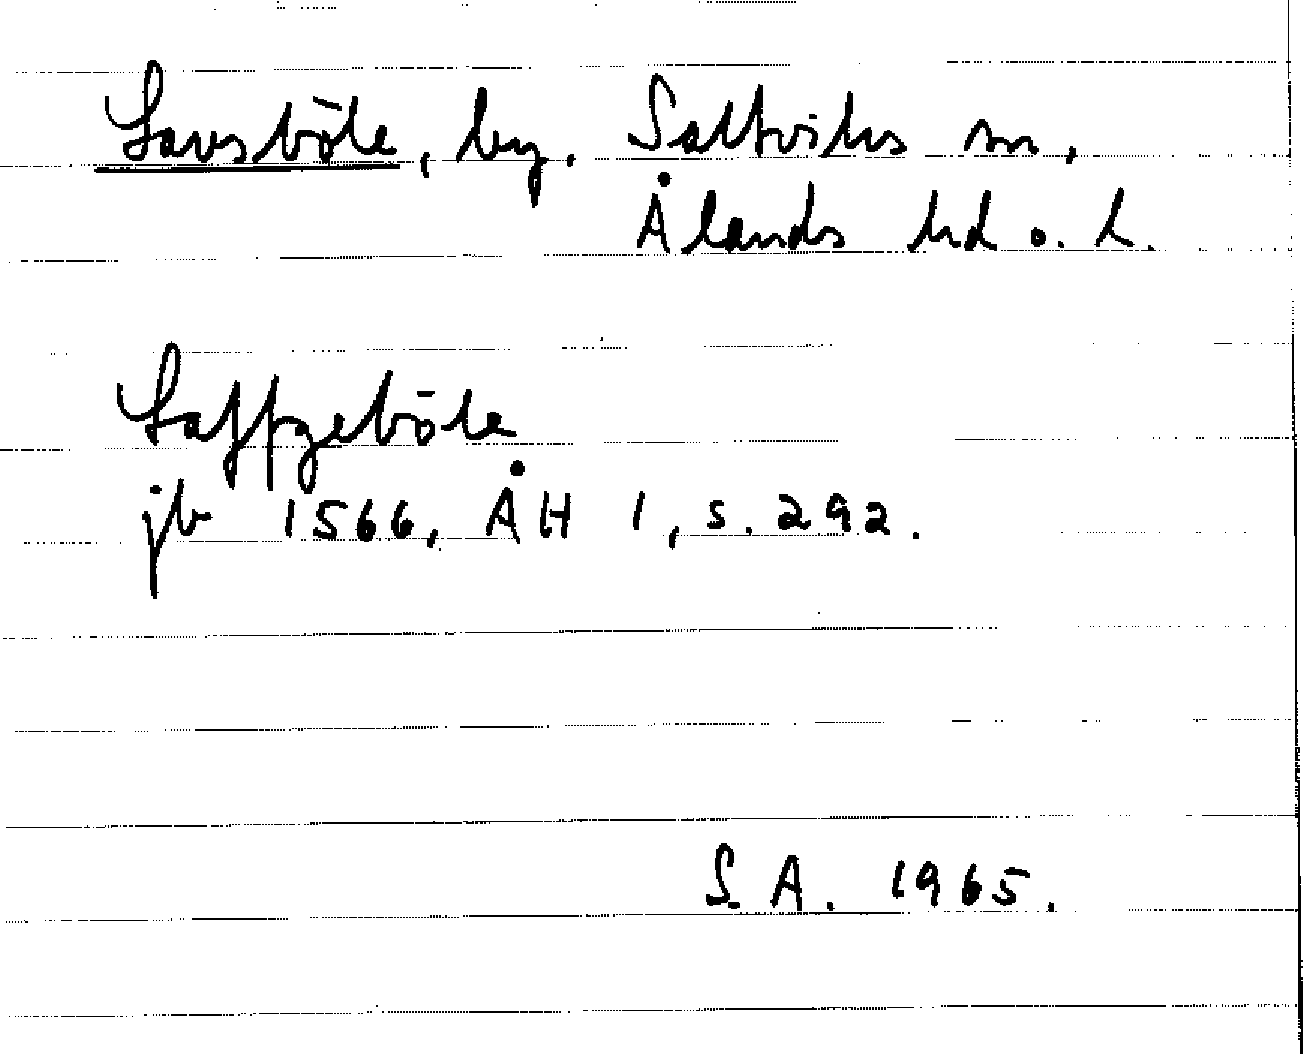 Lavsböle, by. Saltviks sn,
Ålands hd o. l.
Laffzeböle
jb 1566, ÅH 1, s. 292.
S. A. 1965.